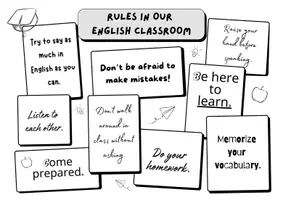 RULES IN OUR
ENGLISH CLASSROOM
Try to say as
much in
English as you
can.
Don't be afraid to
make mistakes!
Raise your
hand before
speaking.
Be here
to
learn.
Listen to
each other.
Don't walk
around in
class without
asking.
Do your
homework.
Memorize
your
vocabulary.
Come
prepared.